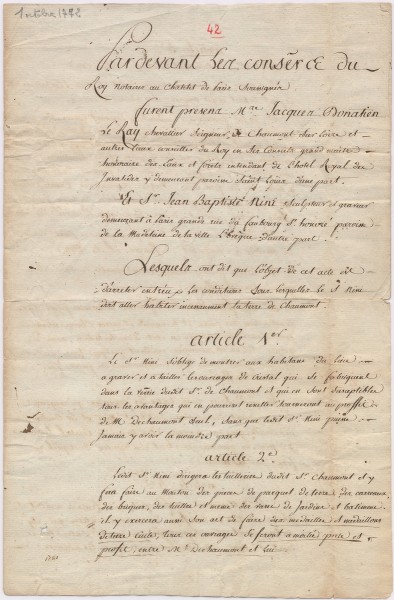 1 octobre 1772
42
Pardevant Les conseillers du
Roy notaires au Chatelet de Paris Soussignés
furent presens Mre Jacques Donatien
Le Ray chevallier Seigneur de Chaumont sur Loire et
autres Lieux conseiller du Roy en Ses Conseils grand maitre
honoraire des Eaux et forets intendant de l'hotel Royal des
Invalides y demeurant paroisse Saint Louis d'une part.
Et Sr. Jean Baptiste Nini sculpteur et graveur
demeurant à Paris grande rue du faubourg St. honoré paroisse
de la Madeleine de la ville L'Eveque d'autre part.
Lesquels ont dit que l'objet de cet acte est
d'arreter entre eux les conditions sous lesquelles le S. Nini
doit aller habiter incessamment la terre de Chaumont.
article 1er.
Le Sr. Nini s'oblige de montrer aux habitans du lieu
a graver et a tailler les ouvrages de cristal qui se fabriquent
dans la terre dudit Sr. de Chaumont et qui en sont susceptibles
tous les avantages qui en pouront resulter tourneront au proffit
de M. Dechaumont seul, sans que ledit Sr. Nini puisse
Jamais y avoir la moindre part.
article 2e.
Ledit Sr. Nini dirigera les tuilleries dudit Sr. Chaumont et y
fera faire au Mouton des pieces de parquet de terre des carreaux
des briques, des tuilles et meme des vases de Jardins et batimens
et y exercera aussi son art de faire des medailles et medaillons
de terre cuite, tous ces ouvrages se feront a moitié perte et
profit, entre M. Dechaumont et lui